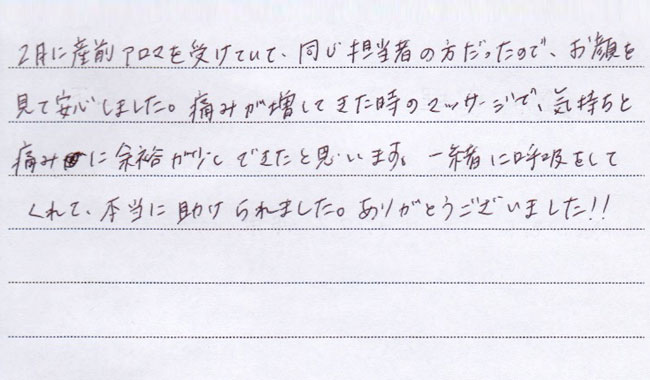 2月に産前アロマを受けていて、同じ担当者の方だったので、お顔を
見て安心しました。痛みが増してきた時のマッサージで、気持ちと
痛みに余裕が少しできたと思います。一緒に呼吸をして
くれて、本当に助けられました。ありがとうございました!!